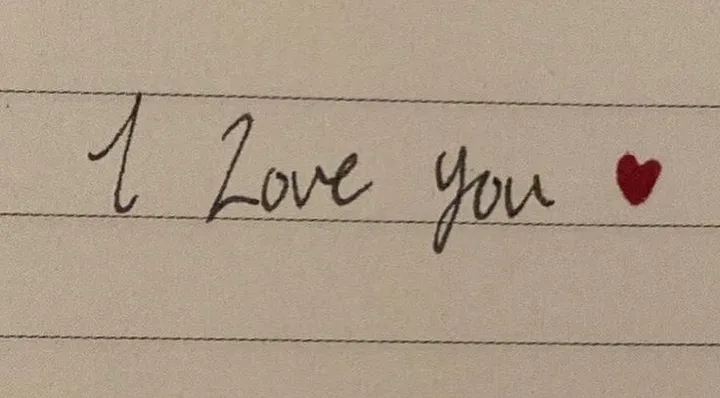 I Love you ❤